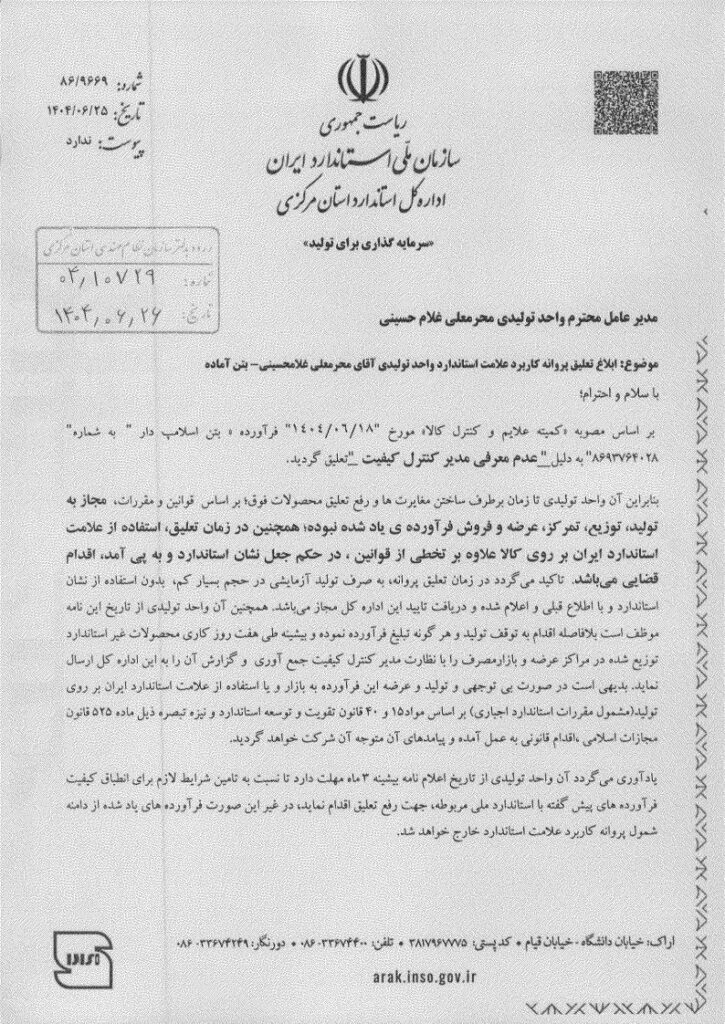 شماره: ۸۶/۹۶۶۹
تاریخ: ۱۴۰۴/۰۶/۲۵
پیوست: ندارد
ریاست جمهوری
سازمان ملّی استاندارد ایران
اداره کل استاندارد استان مرکزی
«سرمایه گذاری برای تولید»
ورود به دفتر سازمان نظام مهندسی استان مرکزی
شماره: ۰۴,۱۰۷۲۹
تاریخ: ۱۴۰۴,۰۶,۲۶
مدیر عامل محترم واحد تولیدی محرمعلی غلام حسینی
موضوع: ابلاغ تعلیق پروانه کاربرد علامت استاندارد واحد تولیدی آقای محرمعلی غلامحسینی– بتن آماده
با سلام و احترام؛
بر اساس مصوبه «کمیته علایم و کنترل کالا» مورخ "۱۴۰۴/۰۶/۱۸" فرآورده « بتن اسلامپ دار " به شماره"
۸۶۹۳۷۶۴۰۲۸" به دلیل_"عدم معرفی مدیر کنترل کیفیت _"تعلیق گردید.
بنابراین آن واحد تولیدی تا زمان برطرف ساختن مغایرت ها و رفع تعلیق محصولات فوق؛ بر اساس قوانین و مقررات، مجاز به
تولید، توزیع، تمرکز، عرضه و فروش فرآورده ی یاد شده نبوده؛ همچنین در زمان تعلیق، استفاده از علامت
استاندارد ایران بر روی کالا علاوه بر تخطی از قوانین ، در حکم جعل نشان استاندارد و به پی آمد، اقدام
قضایی می‌باشد. تاکید می‌گردد در زمان تعلیق پروانه، به صرف تولید آزمایشی در حجم بسیار کم، بدون استفاده از نشان
استاندارد و با اطلاع قبلی و اعلام شده و دریافت تایید این اداره کل مجاز می‌باشد. همچنین آن واحد تولیدی از تاریخ این نامه
موظف است بلافاصله اقدام به توقف تولید و هر گونه تبلیغ فرآورده نموده و بیشینه طی هفت روز کاری محصولات غیر استاندارد
توزیع شده در مراکز عرضه و بازارمصرف را با نظارت مدیر کنترل کیفیت جمع آوری و گزارش آن را به این اداره کل ارسال
نماید. بدیهی است در صورت بی توجهی و تولید و عرضه این فرآورده به بازار و یا استفاده از علامت استاندارد ایران بر روی
تولید(مشمول مقررات استاندارد اجباری) بر اساس مواد۱۵ و ۴۰ قانون تقویت و توسعه استاندارد و نیزه تبصره ذیل ماده ۵۲۵ قانون
مجازات اسلامی ،اقدام قانونی به عمل آمده و پیامدهای آن متوجه آن شرکت خواهد گردید.
یادآوری می‌گردد آن واحد تولیدی از تاریخ اعلام نامه بیشینه ۳ ماه مهلت دارد تا نسبت به تامین شرایط لازم برای انطباق کیفیت
فرآورده های پیش گفته با استاندارد ملی مربوطه، جهت رفع تعلیق اقدام نماید، در غیر این صورت فرآورده های یاد شده از دامنه
شمول پروانه کاربرد علامت استاندارد خارج خواهد شد.
اراک: خیابان دانشگاه - خیابان قیام • کد پستی: ۳۸۱۷۹۶۷۷۷۵ • تلفن: ۳۳۶۷۴۴۰۰-۰۸۶ • دورنگار: ۳۳۶۷۴۲۴۹-۰۸۶
arak.inso.gov.ir